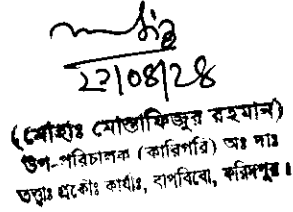 ২৭/০৪/২৪
(মোহাঃ মোস্তাফিজুর রহমান)
উপ-পরিচালক (কারিগরি) অঃ দাঃ
তত্ত্বাঃ প্রকৌঃ কার্যাঃ, বাপবিবো, ফরিদপুর।